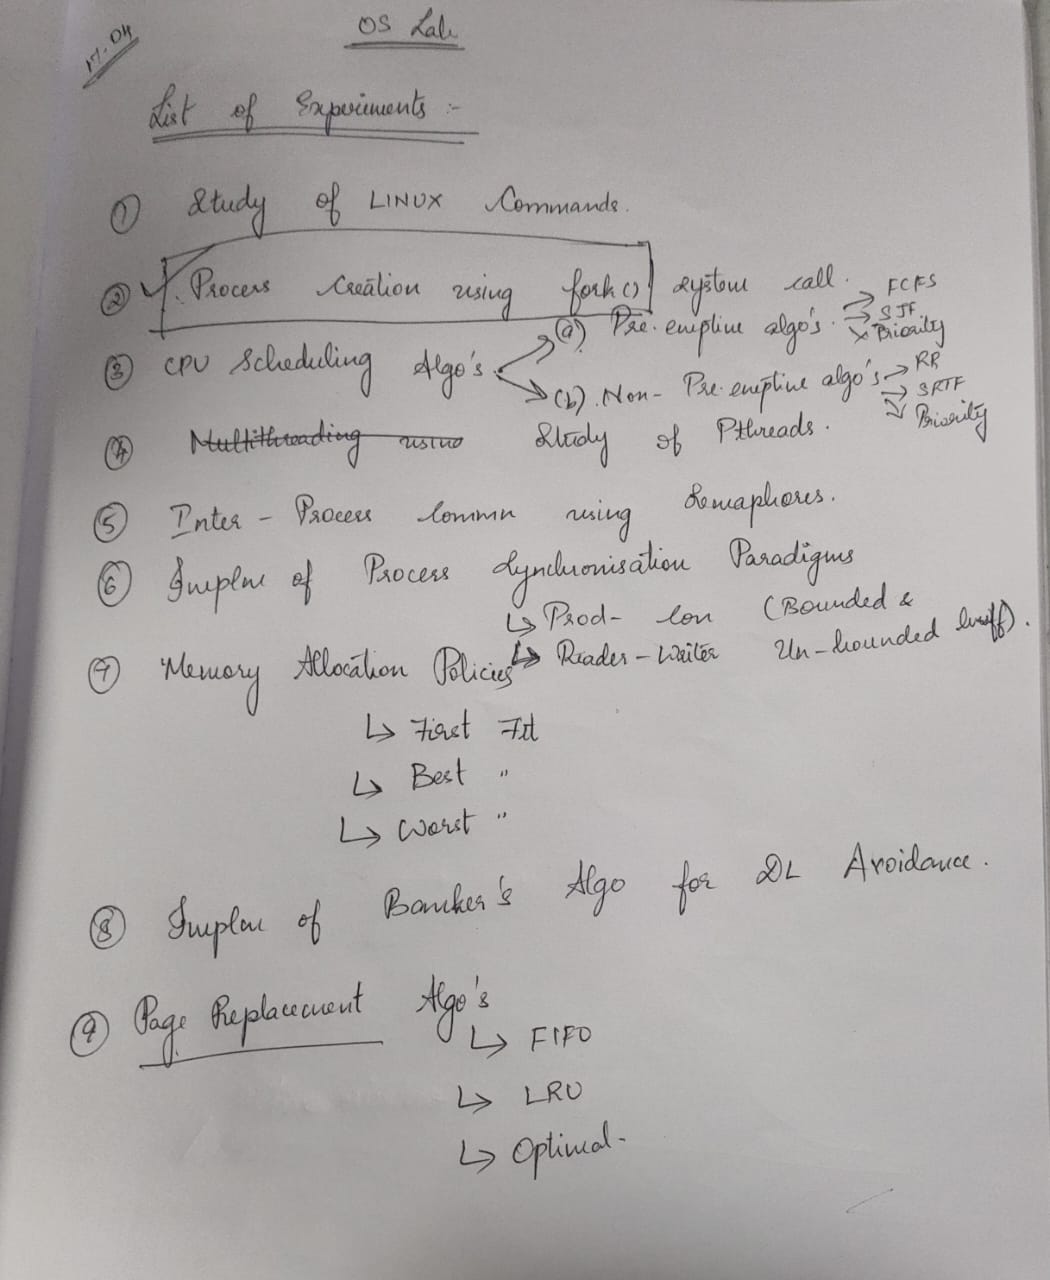 17.04
OS Lab
List of Experiments :-
① Study of LINUX Commands.
② Process Creation using fork() system call.
③ CPU Scheduling Algo's
(a) Pre-emptive algo's. → FCFS
→ SJF
→ Priority
(b). Non-Pre-emptive algo's → RR
→ SRTF
→ Priority
④ Multithreading using Study of Pthreads.
⑤ Inter-Process Commn using Semaphores.
⑥ Implem of Process Synchronisation Paradigms
↳ Prod-Con (Bounded &
Un-bounded buff).
↳ Reader-Writer
⑦ Memory Allocation Policies
↳ First Fit
↳ Best "
↳ Worst "
⑧ Implem of Banker's Algo for DL Avoidance.
⑨ Page Replacement Algo's
↳ FIFO
↳ LRU
↳ Optimal-